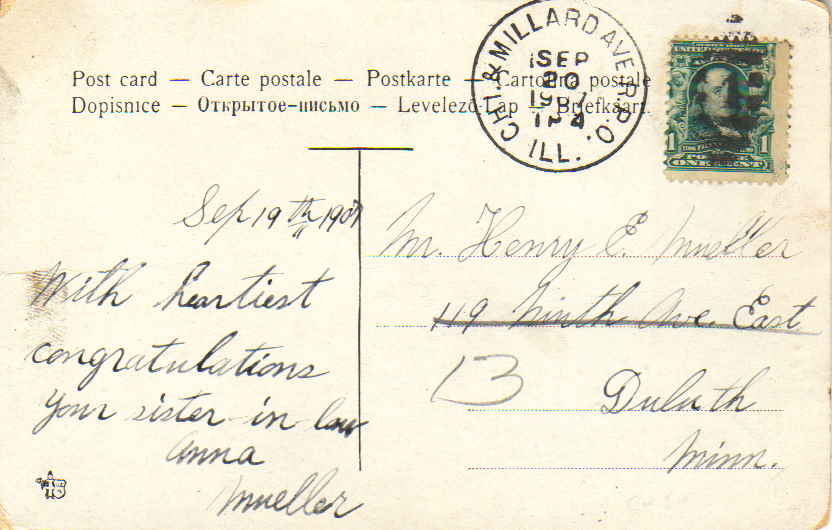 Post card — Carte postale — Postkarte — Cartolina postale
Dopisnice — Открытое-письмо — Levelező-Lap — Briefkaart.
CHI. & MILLARD AVE. R.P.O.
SEP
20
1907
TR 4
ILL.
1
ONE CENT
Sep 19th 1907
With heartiest
congratulations
Your sister-in law
Anna
Mueller
Mr. Henry E. Mueller
119 Ninth Ave. East
13
Duluth
Minn.